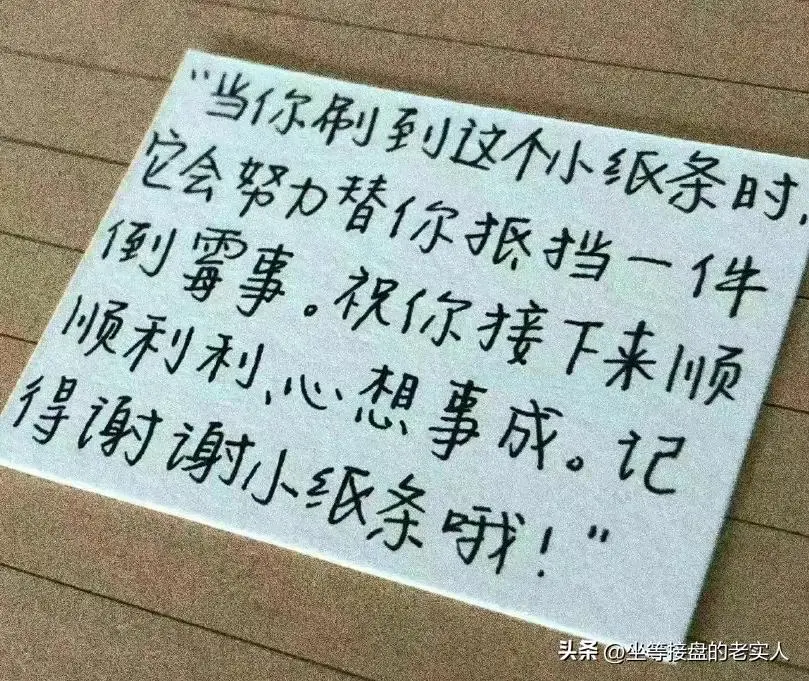 "当你刷到这个小纸条时，
它会努力替你抵挡一件
倒霉事。祝你接下来顺
顺利利、心想事成。记
得谢谢小纸条哦！"
头条 @坐等接盘的老实人